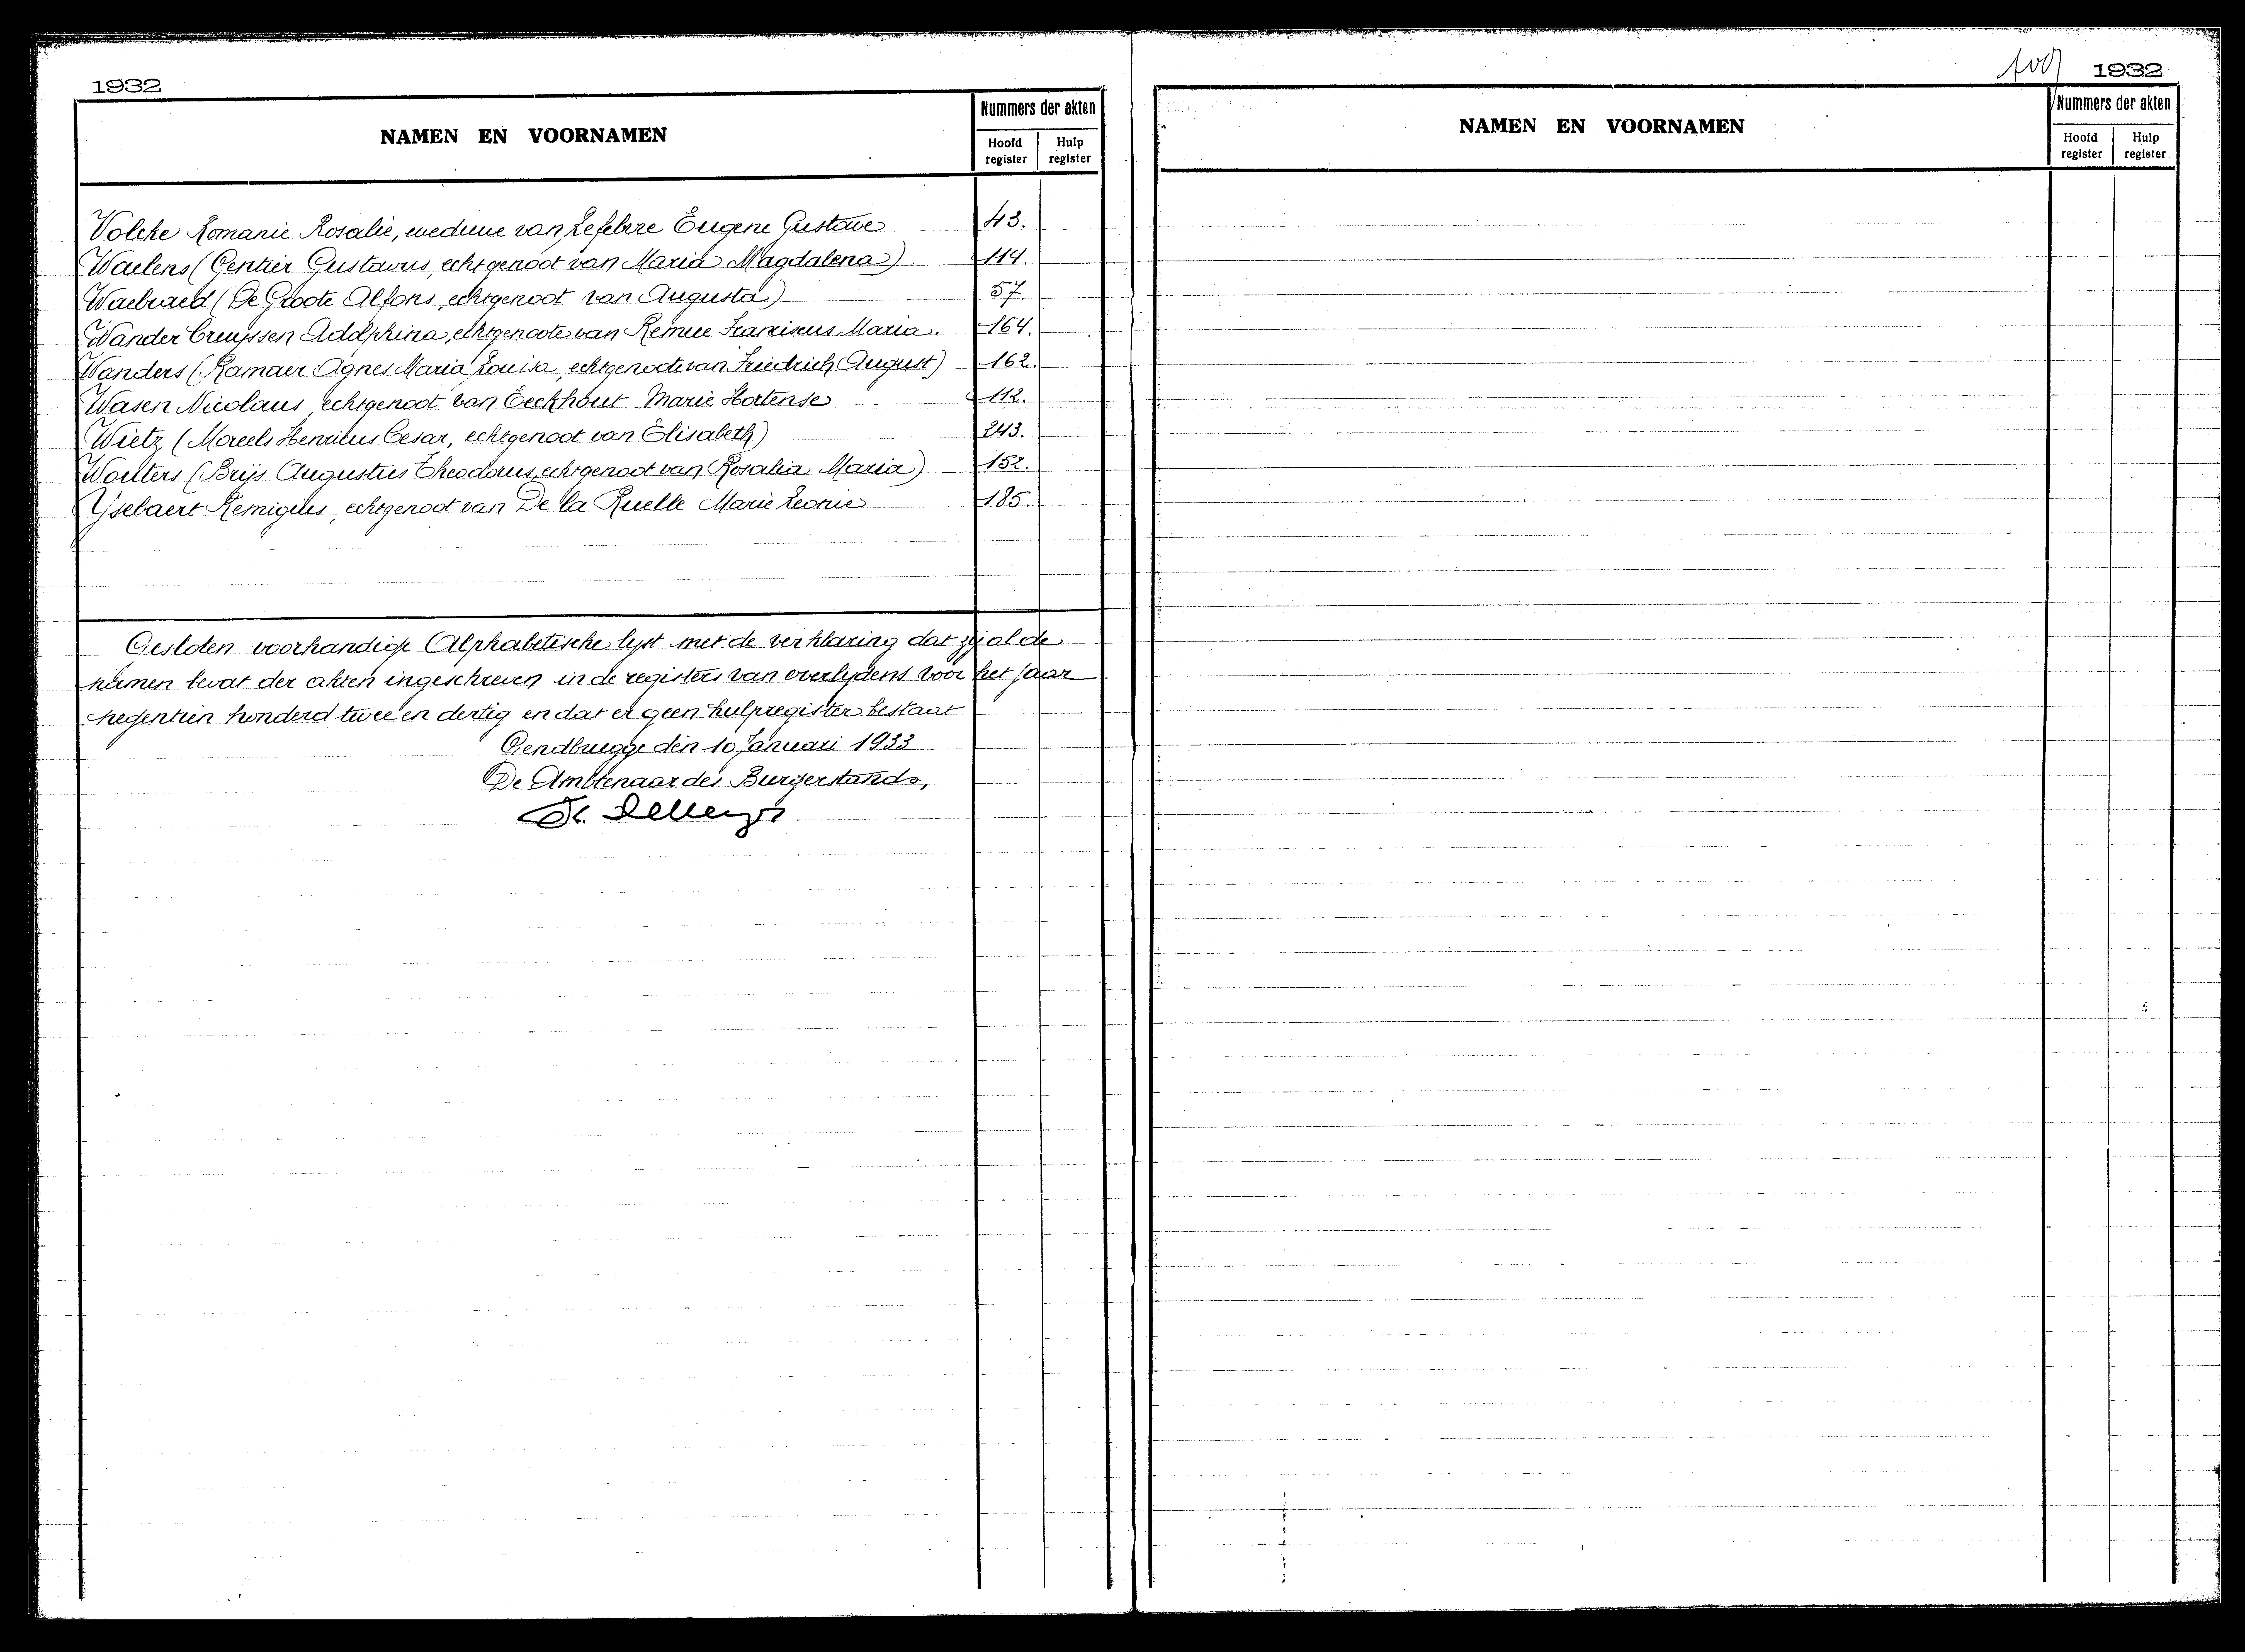 1932
NAMEN EN VOORNAMEN
Nummers der akten
Hoofd register
Hulp register
Volcke Romanie Rosalie, weduwe van Lefebvre Eugene Gustave 43.
Waelens (Gentier Gustavus, echtgenoot van Maria Magdalena) 114.
Waebraed (De Groote Alfons, echtgenoot van Augusta) 57.
Wander Creyssen Adolphina, echtgenoote van Remue Franciscus Maria. 164.
Wanders (Ramaer Agnes Maria Louisa, echtgenoote van Friedrich August) 162.
Wasen Nicolaus, echtgenoot van Eeckhout Marie Hortense 112.
Wietz (Morcels Henricus Cesar, echtgenoot van Elisabeth) 243.
Wouters (Brijs Augustus Theodorus, echtgenoot van Rosalia Maria) 152.
Yselaert Remigius, echtgenoot van De la Ruelle Marie Leonie 185.
Gesloten voorhandige Alphabetische lijst met de verklaring dat zij al de
namen bevat der akten ingeschreven in de registers van overlijdens voor het jaar
negentien honderd twee en dertig en dat er geen hulpregister bestaat
Gendbrugge den 10 Januari 1933
De Ambtenaar des Burgerstands,
1932
NAMEN EN VOORNAMEN
Nummers der akten
Hoofd register
Hulp register